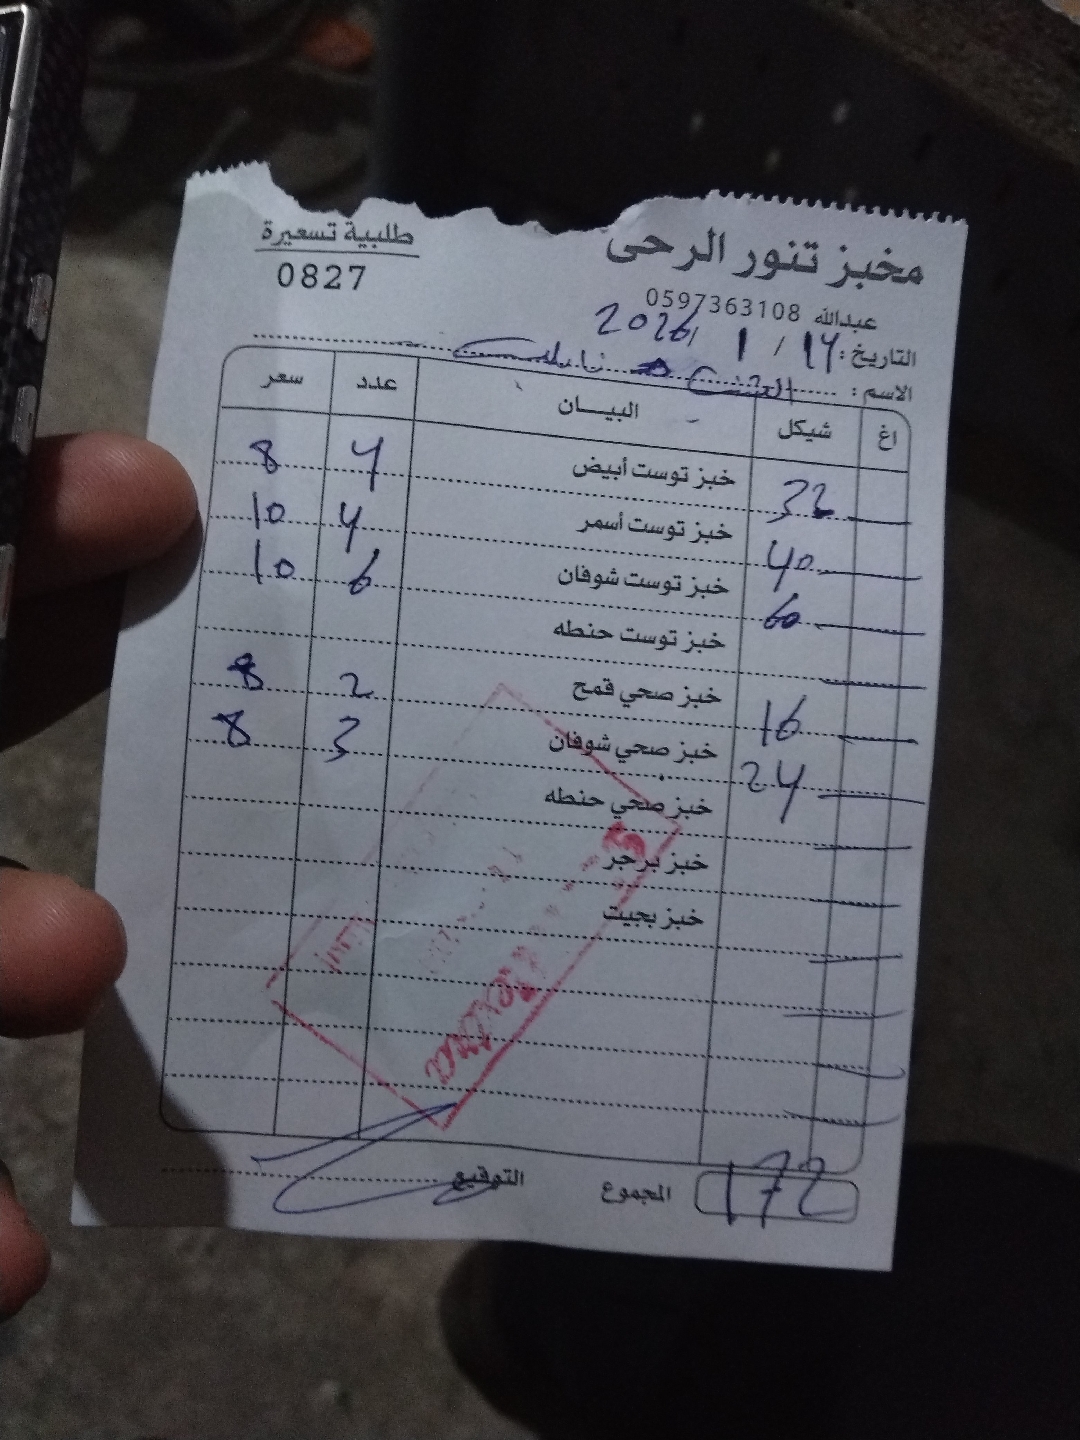 مخبز تنور الرحى
طلبية تسعيرة
عبدالله 0597363108
0827
التاريخ: 14 / 1 / 2026
الاسم:
اغ شيكل البيـــان عدد سعر
32 خبز توست أبيض 4 8
40 خبز توست أسمر 4 10
60 خبز توست شوفان 6 10
خبز توست حنطه
16 خبز صحي قمح 2 8
24 خبز صحي شوفان 3 8
خبز صحي حنطه
خبز برجر
خبز بجيت
172 المجموع التوقيع